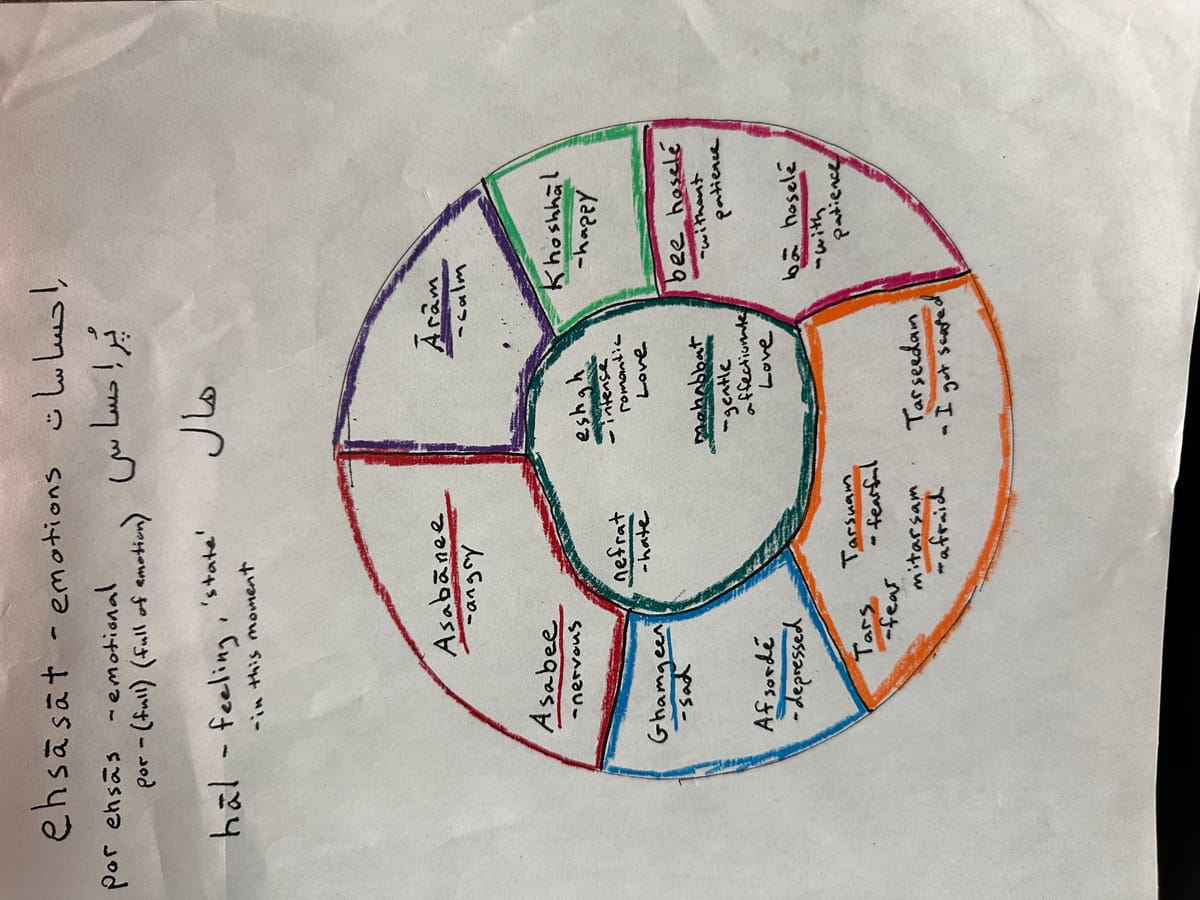 ehsāsāt - emotions احساسات
por ehsās - emotional پُر احساس
por - (full) (full of emotion)
hāl - feeling, 'state' حال
- in this moment
Asabānee
- angry
Asabee
- nervous
Ārām
- calm
Khoshhāl
- happy
bee hoselé
- without
patience
bā hoselé
- with
patience
eshgh
- intense
romantic
Love
mohabbat
- gentle
affectionate
Love
nefrat
- hate
Ghamgeen
- sad
Afsordé
- depressed
Tars
- fear
Tarsuam
- fearful
mitarsam
- afraid
Tarseedam
- I got scared